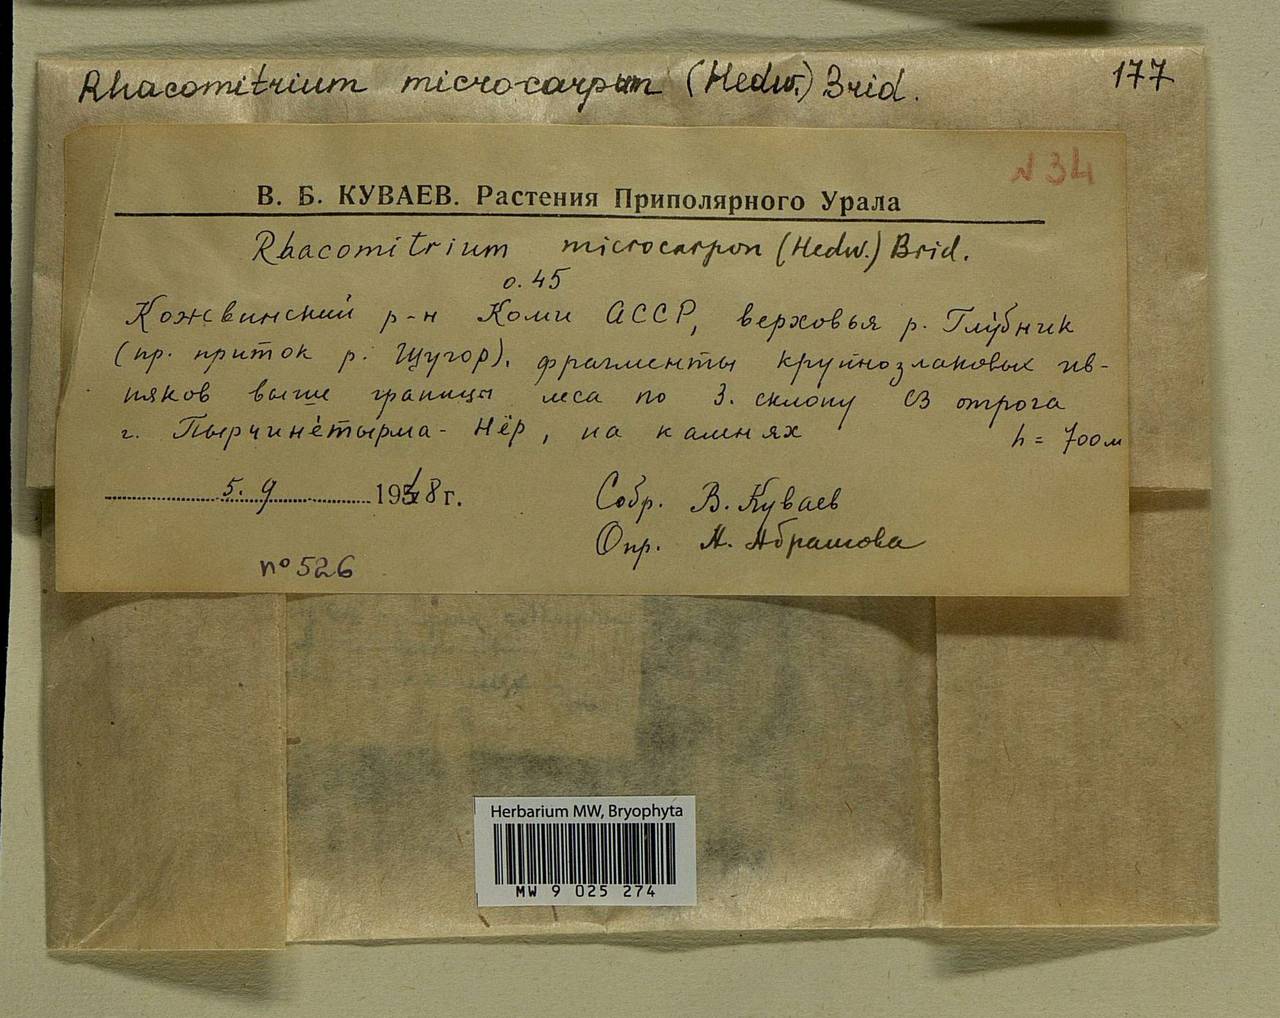 Rhacomitrium microcarpum (Hedw.) Brid. 177
N 34
В. Б. КУВАЕВ. Растения Приполярного Урала
Rhacomitrium microcarpon (Hedw.) Brid.
о. 45
Кожвинский р-н Коми АССР, верховья р. Глубник
(пр. приток р. Щугор), фрагменты крупнозлаковых ив-
няков выше границы леса по З. склону СЗ отрога
г. Пырчинéтырма-Нёр, на камнях h = 700м
5. 9 1948 г.
Собр. В. Куваев
Опр. И. Абрамова
n° 526
Herbarium MW, Bryophyta
MW 9 025 274